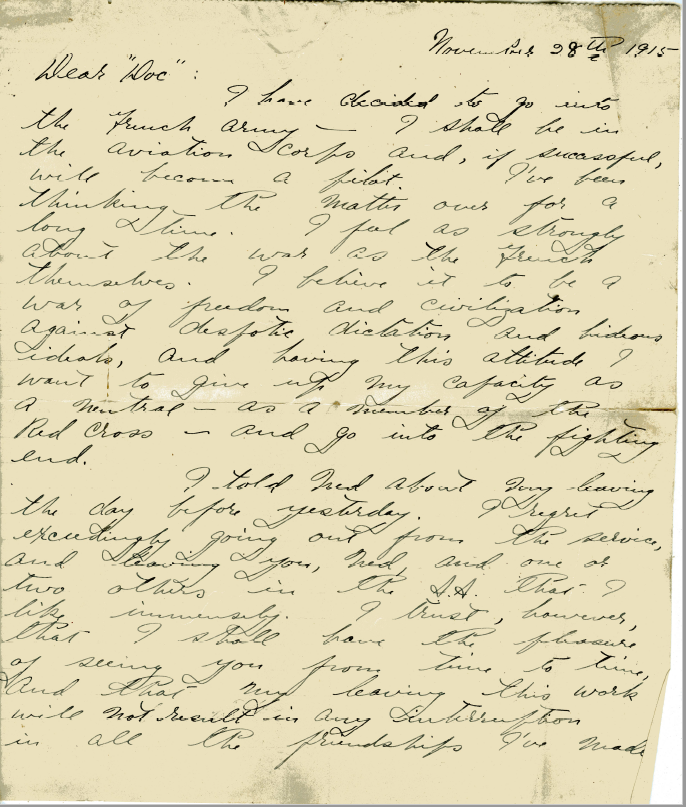 November 28th 1915
Dear "Doc" :
I have decided to go into
the French army — I shall be in
the aviation corps and, if successful,
will become a pilot. I've been
thinking the matter over for a
long time. I feel as strongly
about the war as the French
themselves. I believe it to be a
war of freedom and civilization
against despotic dictation and hideous
ideals, and having this attitude I
want to give up my capacity as
a neutral — as a member of the
Red Cross — and go into the fighting
end.
I told Ned about my leaving
the day before yesterday. I regret
exceedingly going out from the service,
and leaving you, Ned, and one or
two others in the S.A. that I
like immensely. I trust, however,
that I shall have the pleasure
of seeing you from time to time,
And that my leaving this work
will not result in any interruption
in all the friendships I've made